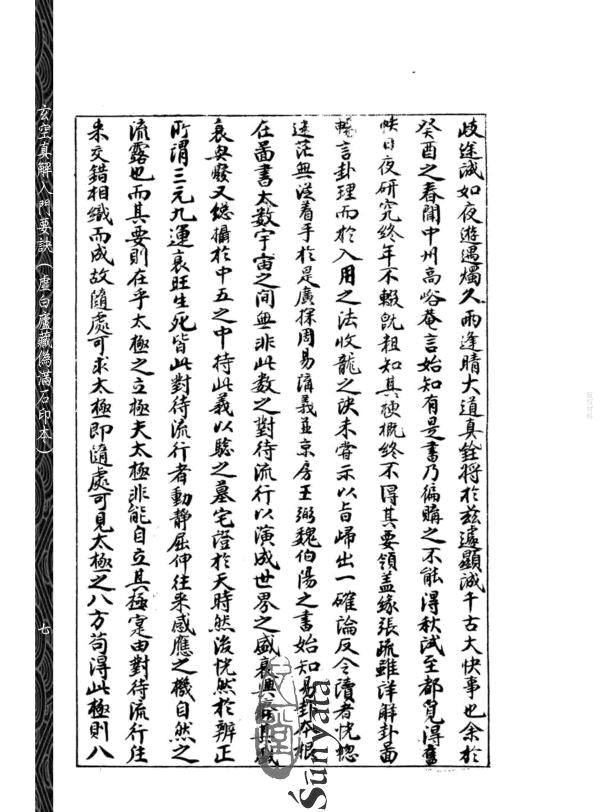 岐途誠如夜遊遇燭久雨逢晴大道真銓將於茲遽顯誠千古大快事也余於
癸酉之春聞中州高峪菴言始知有是書乃徧購之不能得秋試至都覓得舊
帙日夜研究終年不輟旣粗知其梗概終不得其要領盖緣張疏雖詳解卦圖
暢言卦理而於入用之法收龍之訣未嘗示以旨歸出一確論反令讀者恍惚
迷茫無從着手於是廣探周易講義並京房王弼魏伯陽之書始知易卦本根
在圖書太數宇宙之間無非此数之對待流行以演成世界之盛衰興
衰與廢又總攝於中五之中待此義以驗之墓宅證於天時然後恍然於辨正
所謂三元九運衰旺生死皆此對待流行者動靜屈伸往來感應之機自然之
流露也而其要則在乎太極之立極夫太極非能自立其極寔由對待流行往
来交錯相織而成故隨處可求太極即隨處可見太極之八方苟得此極則八
玄空真解入門要訣(虛白廬藏偽滿石印本)
七
Śūnyatā